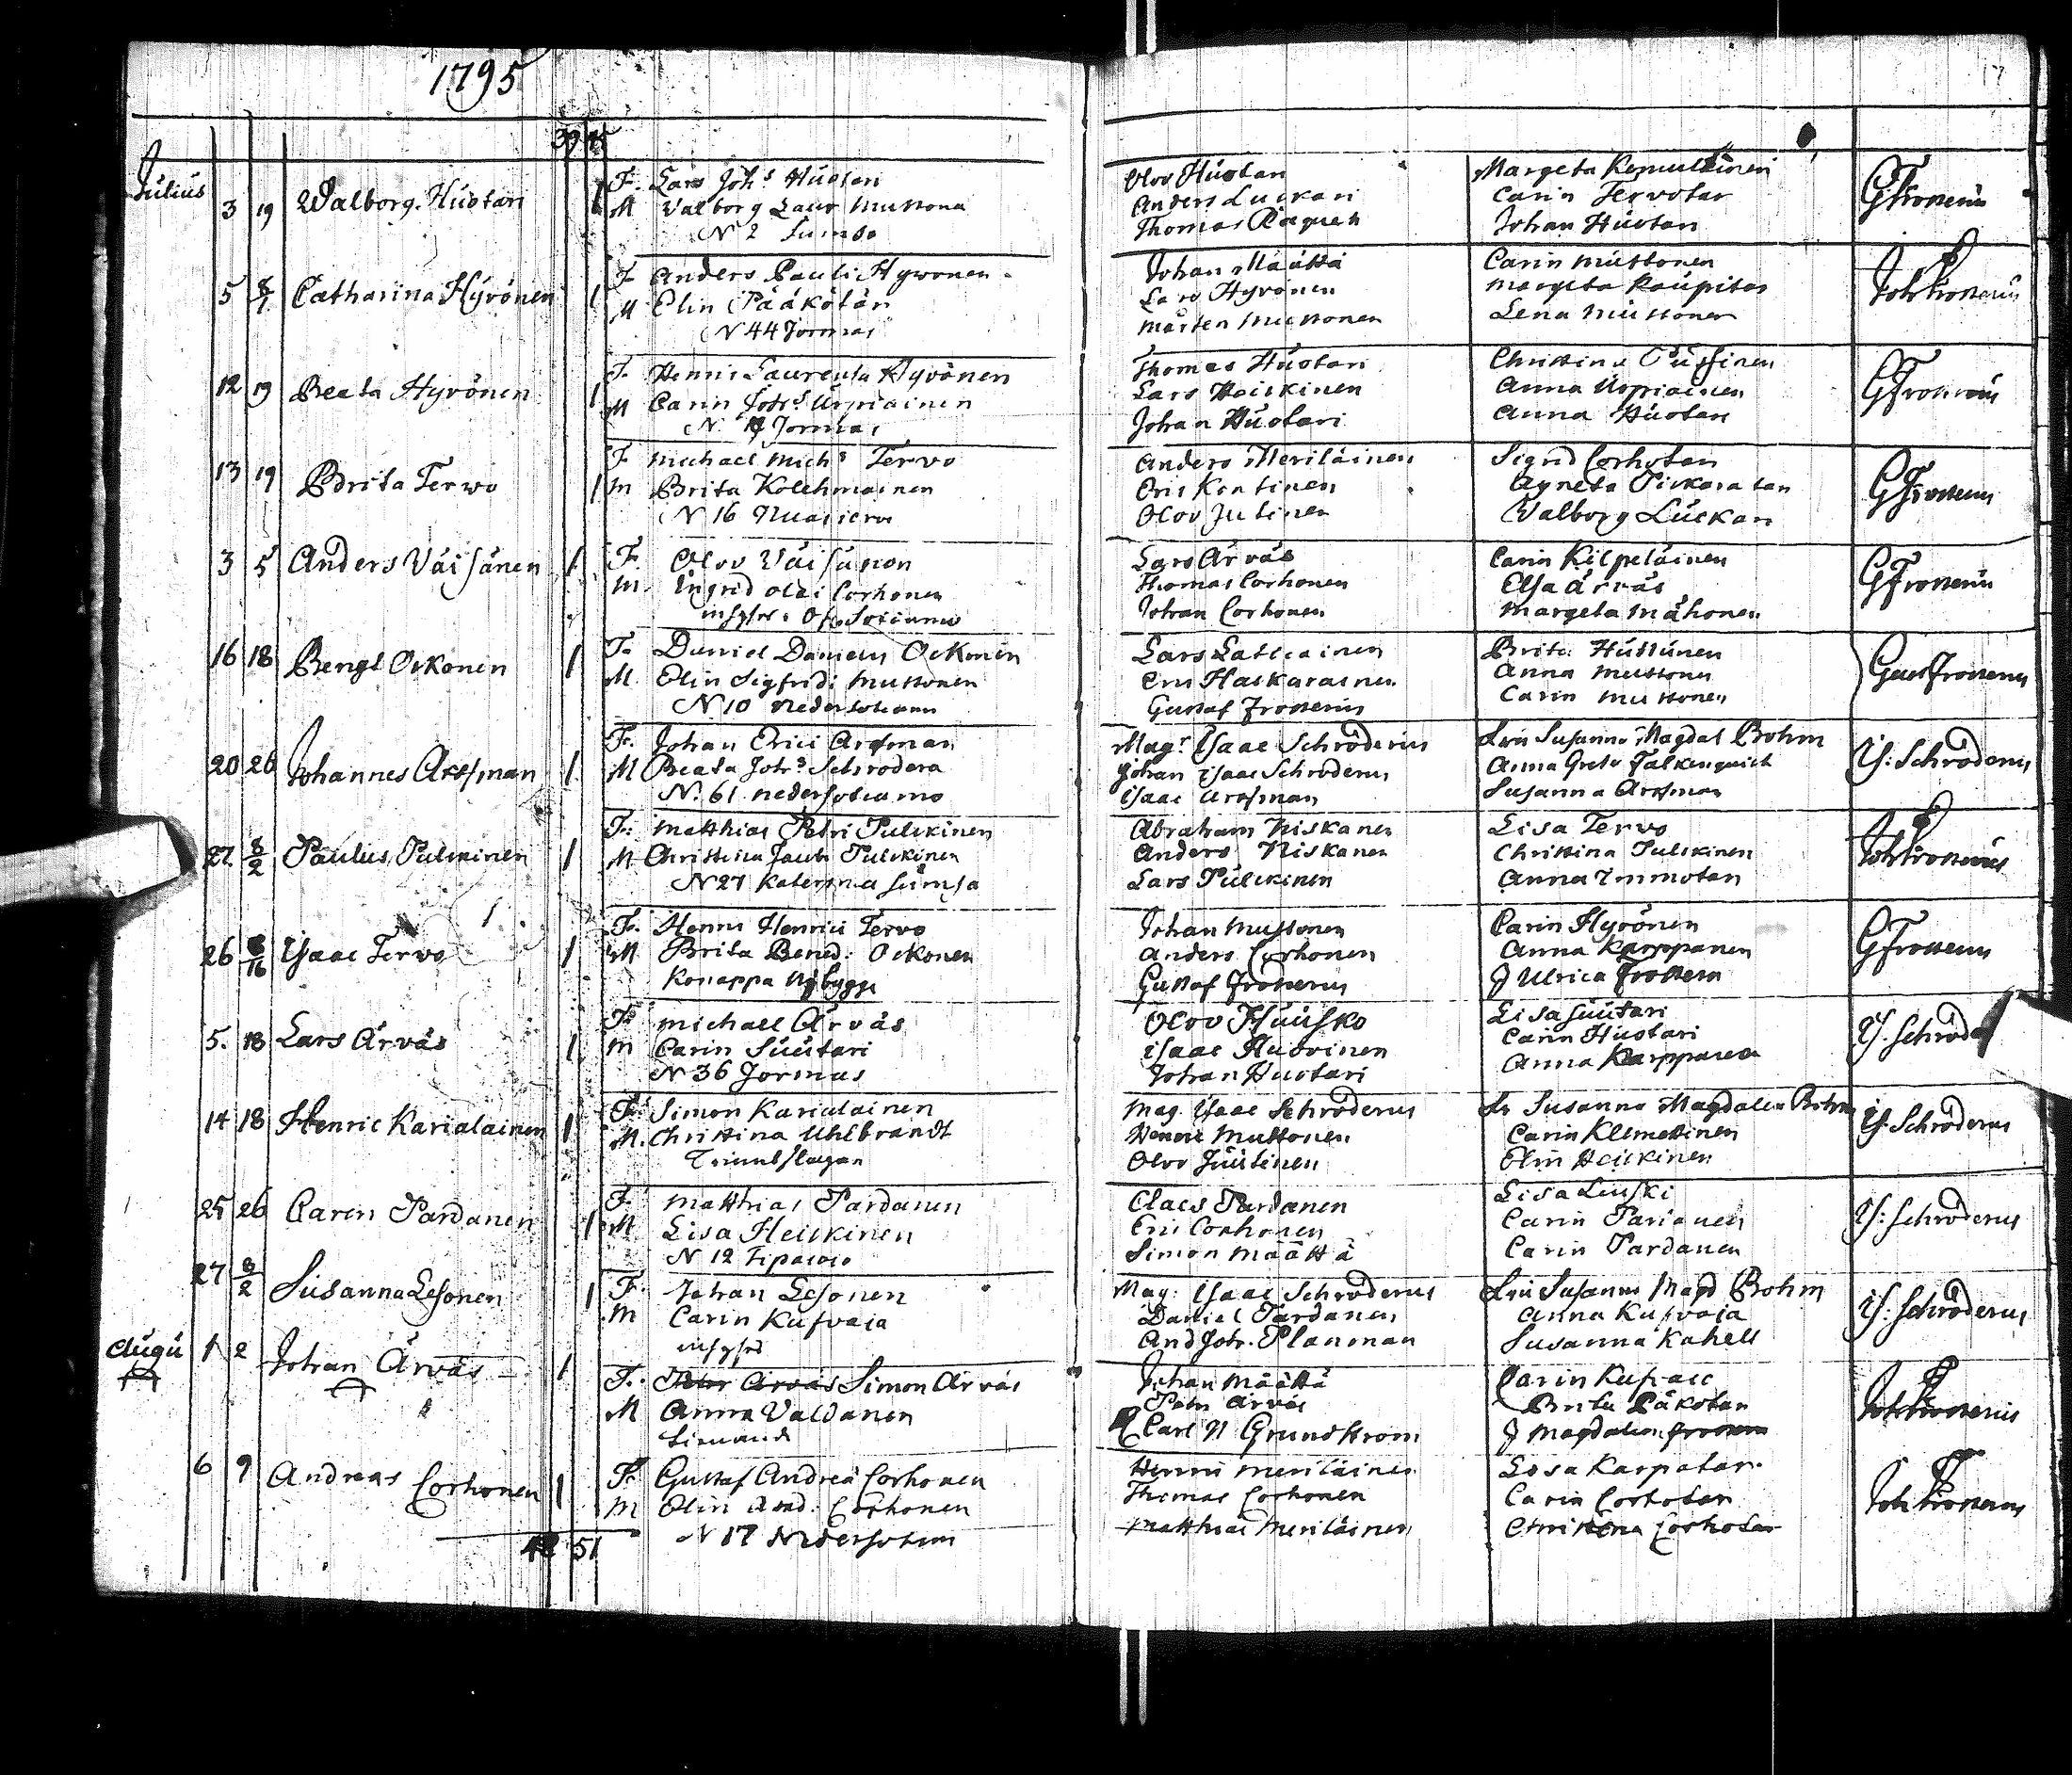 1795
17
39
Julius 3 19 Walborg Huotari 1
F. Lars Joh:s Huotari
M Valborg Laur Mustona
N 2 Sumsa
Olov Huotari
Anders Luckari
Thomas
Margeta Kemuläinen
Carin Tervotar
Johan Huotari
GFrosterus
5 8/1 Catharina Hyvönen 1
F Anders Pauli Hyvonen
M Elin Pääkötär
N 44 Jormas
Johan Määttä
Lars Hyvönen
Mårten Mustonen
Carin Mustonen
Margeta Kaupitar
Lena Mustonen
Joh Frosterus
12 19 Beata Hyvönen 1
F. Henric Laurenta Hyvönen
M Carin Joh:s Urpiainen
N. Jormas
Thomas Huotari
Lars Heiskinen
Johan Huotari
Christina Pussinen
Anna Urpiainen
Anna Huotari
GFrosterus
13 19 Brita Terwo 1
F Michael Mich:s Tervo
M Brita Kolehmainen
N 16
Anders Meriläinen
Eric Kontinen
Olov Jutinen
Sigrid Corhotar
Agneta Piskaratar
Valborg Luckari
GFrosterus
3 5 Anders Väisänen 1
F. Olov Väisänen
M. Ingrid Olai Corhonen
inhyses Ofv Sotkamo
Lars Ärväs
Thomas Corhonen
Johan Corhonen
Carin Kilpeläinen
Elsa Ärväs
Margeta Mähönen
GFrosterus
16 18 Bengt Ockonen 1
F. Daniel Daniels Ockonen
M. Elin Sigfridi Mustonen
N 10 Nedersotkamo
Lars Laticainen
Eric Haskarainen
Gustaf Frosterus
Brita Huttunen
Anna Mustonen
Carin Mustonen
Gust Frosterus
20 26 Johannes Arosman 1
F. Johan Erici Arosman
M Beata Joh:s Schrodera
N. 61 Nedersotkamo
Mag:r Isaac Schröderus
Johan Isaac Schroderus
Isaac Arosman
Fru Susanna Magdal Bohm
Anna Greta Falkenqvist
Susanna Arosman
Is: Schröderus
27 8/2 Paulus Pulkinen 1
F. Matthias Petri Pulkinen
M Christina Jacobi Pulkinen
N 27 Katerma Sumsa
Abraham Niskanen
Anders Niskanen
Lars Pulkinen
Lisa Tervo
Christina Pulkinen
Anna Immotar
Joh Frosterus
26 8/16 Isaac Tervo 1
F. Henric Henrici Tervo
M Brita Bened: Ockonen
Konappa Nybygge
Johan Mustonen
Anders Corhonen
Gustaf Frosterus
Carin Hyvönen
Anna Karppanen
J Ulrica Frosterus
GFrosterus
5. 18 Lars Ärväs 1
F Michael Ärväs
M Carin Suutari
N 36 Jormas
Olov Huusko
Isaac Huovinen
Johan Huotari
Lisa Suutari
Carin Huotari
Anna Karppanen
Is. Schröde
14 18 Henric Karialainen 1
F. Simon Karialainen
M. Christina Uhlbrandt
Trumslagar
Mag. Isaac Schroderus
Henric Mustonen
Olov Juutinen
Fr Susanna Magdalen Bohm
Carin Klemettinen
Elin Heiskinen
Is. Schröderus
25 26 Carin Pardanen 1
F. Matthias Pardanen
M Lisa Heiskinen
N 12 Tipasoio
Claes Pardanen
Eric Corhonen
Simon Määttä
Lisa Leuski
Carin Parianen
Carin Pardanen
Is: Schröderus
27 8/2 Susanna Lesonen 1
F. Johan Lesonen
M Carin Kufvaia
inhyses
Mag: Isaac Schröderus
Daniel Pardanen
And Joh. Planman
Fru Susanna Magd Bohm
Anna Kufvaia
Susanna Kahell
Is: Schröderus
Augu 1 2 Johan Ärväs 1
F. Peter Ärväs Simon Ärväs
M Anna Valdanen
Johan Määttä
Petr Ärväs
Carl N Grundstrom
Carin Kufvaic
Brita Päkotar
J Magdalen Frosterus
Joh Frosterus
6 9 Andreas Corhonen 1
F. Gustaf Andreä Corhonen
M Elin And: Corhonen
N 17 Nedersotkam
Henric Meriläinen
Thomas Corhonen
Matthias Meriläinen
Lisa Karpatar
Carin Corhotar
Christina Corhotar
Joh Frosterus
48 51